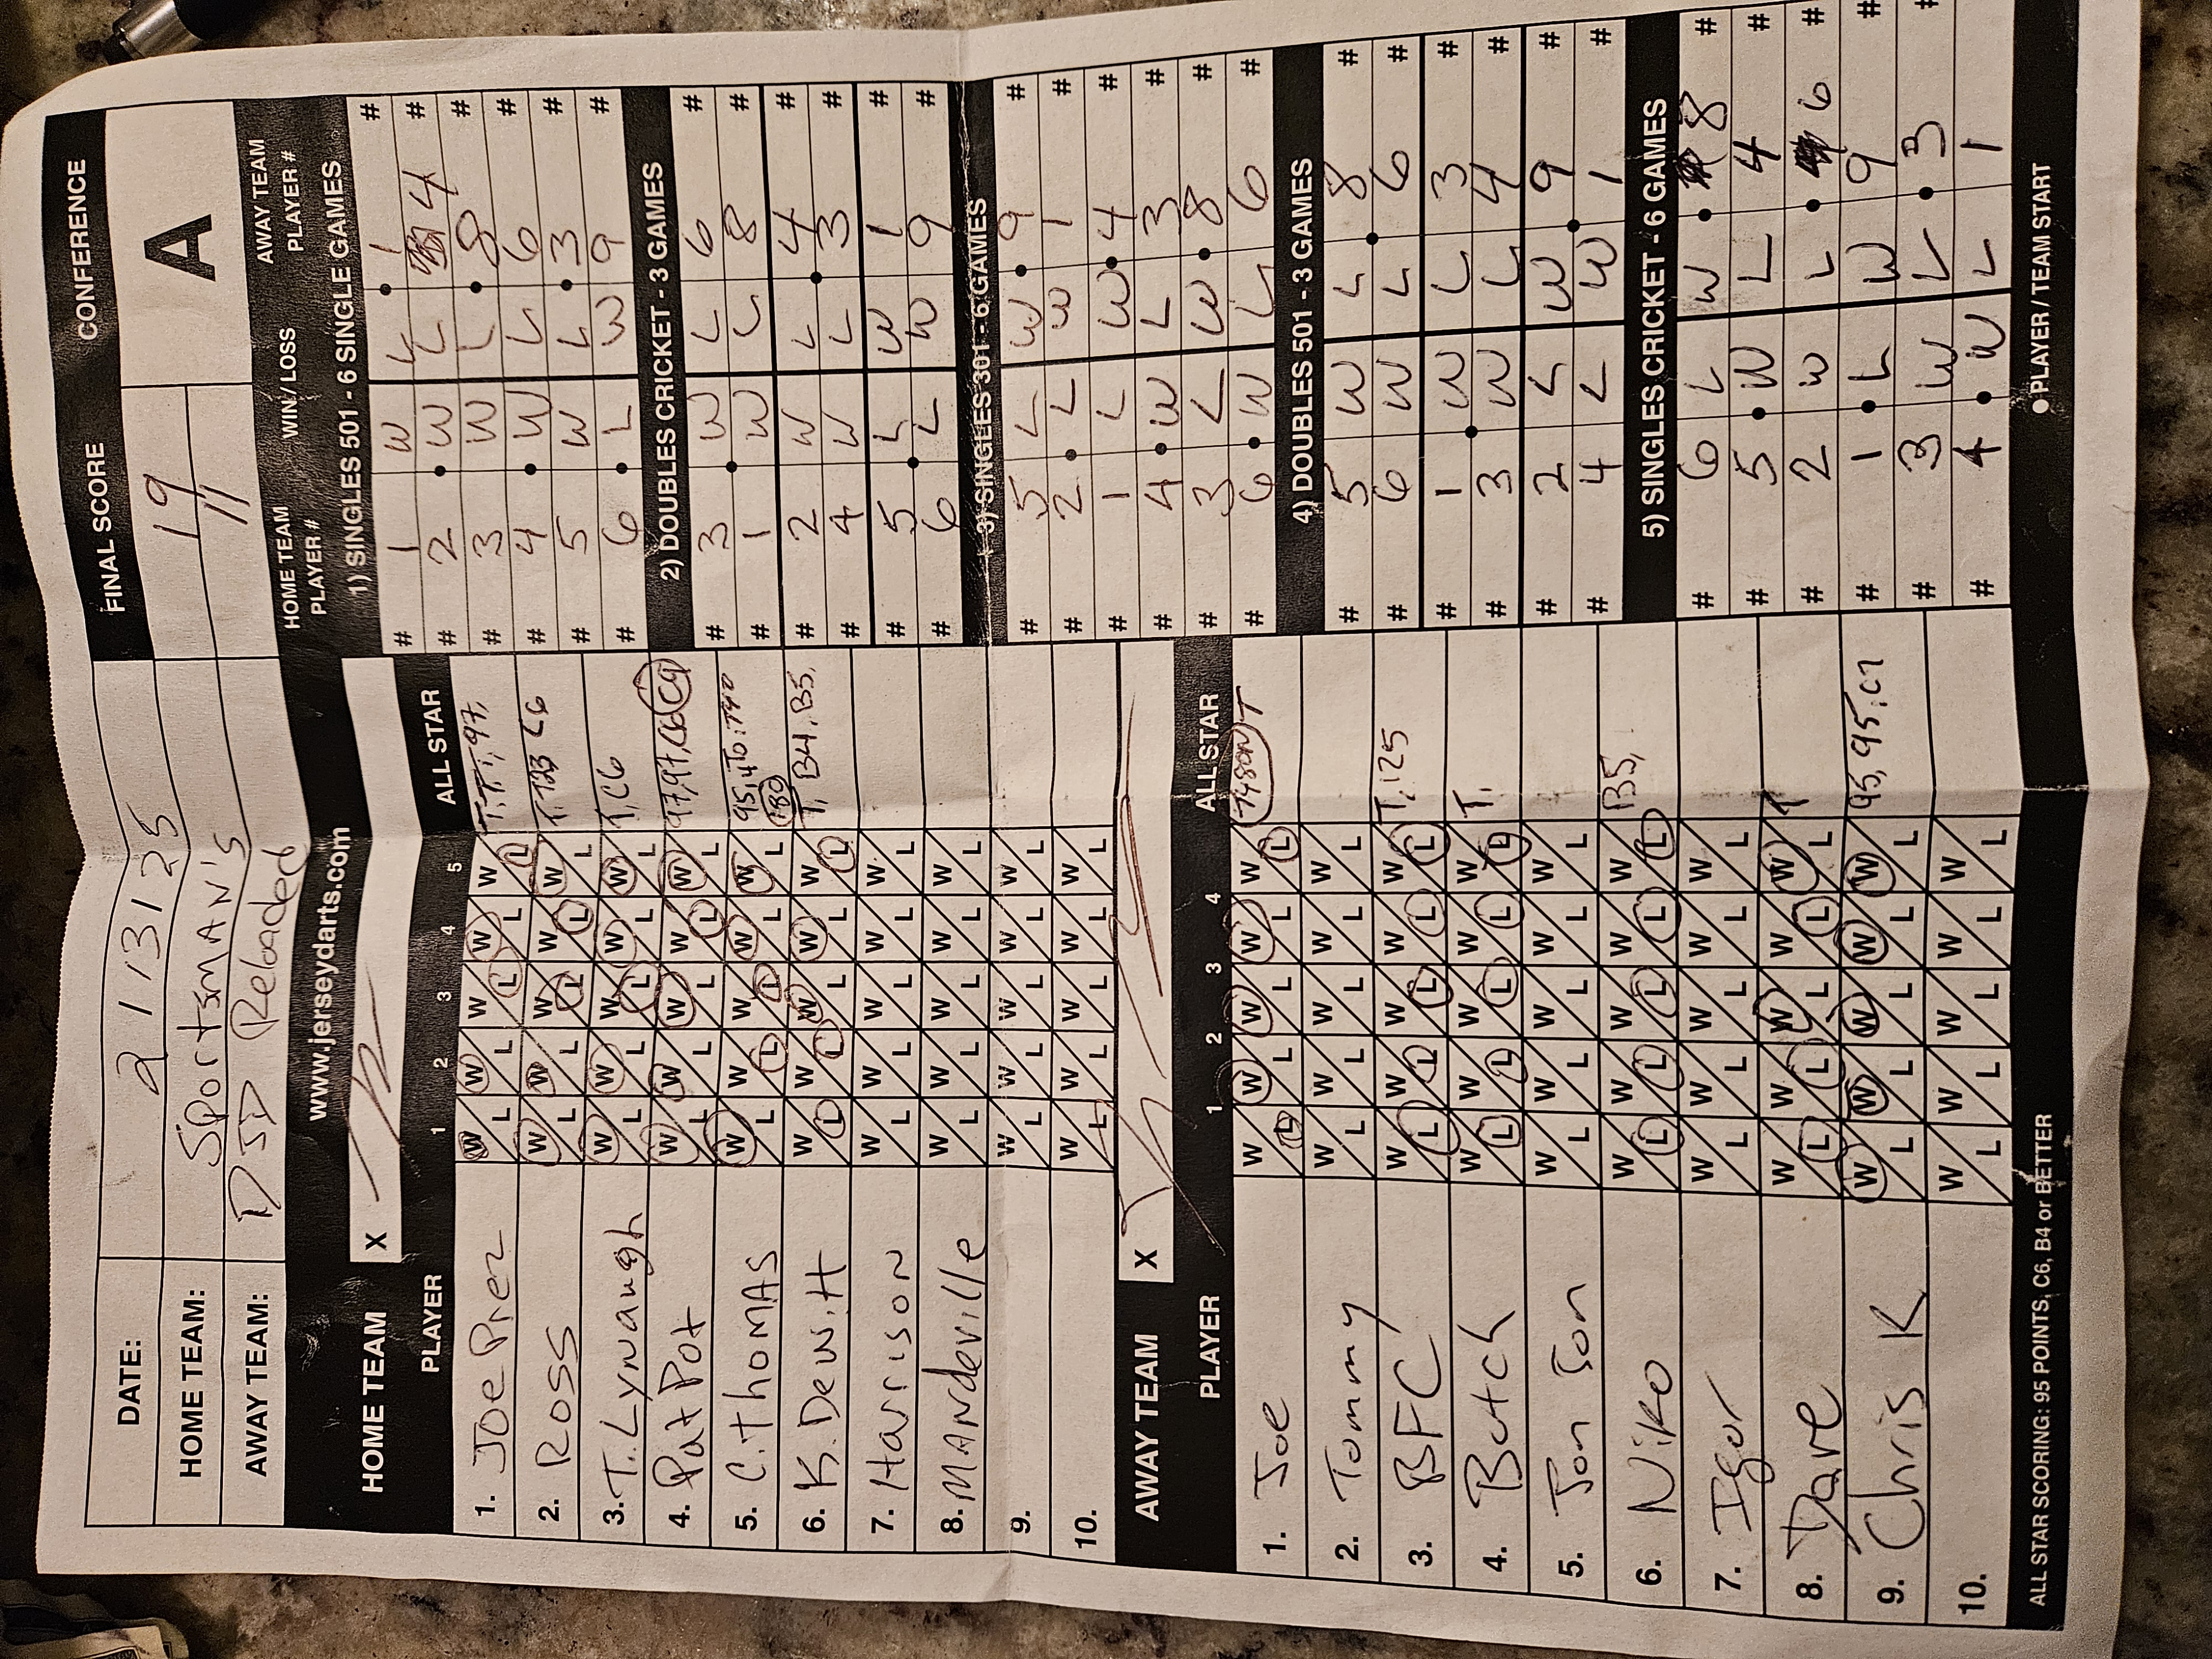 DATE: 2 1 13 1 25
HOME TEAM: Sportsman's
AWAY TEAM: DSD Reloaded
FINAL SCORE
19
11
CONFERENCE
A
HOME TEAM
X
www.jerseydarts.com
PLAYER 1 2 3 4 5 ALL STAR
1. Joe Prez W L W L W L W L W L T, T, T, 97,
2. Ross W L W L W L W L W L T, 123 C6
3. T. Lynaugh W L W L W L W L W L T, C6
4. Pat Pot W L W L W L W L W L 97, 97, C6 C9
5. C. Thomas W L W L W L W L W L 95, 180
6. K. Dewitt W L W L W L W L W L T, B4, B5,
7. Harrison W L W L W L W L W L
8. Mandeville W L W L W L W L W L
9. W L W L W L W L W L
10. W L W L W L W L W L
AWAY TEAM
X
PLAYER 1 2 3 4 ALL STAR
1. Joe W L W L W L W L W L T
2. Tommy W L W L W L W L W L
3. BFC W L W L W L W L W L T, 125
4. Butch W L W L W L W L W L T,
5. Jon Jon W L W L W L W L W L
6. Niko W L W L W L W L W L B5,
7. Igor W L W L W L W L W L
8. Dave W L W L W L W L W L T
9. Chris K W L W L W L W L W L 95, 95, C7
10. W L W L W L W L W L
ALL STAR SCORING: 95 POINTS, C6, B4 or BETTER
HOME TEAM PLAYER # WIN / LOSS AWAY TEAM PLAYER #
1) SINGLES 501 - 6 SINGLE GAMES
# 1 W L 1 #
# 2 W L 4 #
# 3 W L 8 #
# 4 W L 6 #
# 5 W L 3 #
# 6 L W 9 #
2) DOUBLES CRICKET - 3 GAMES
# 3 W L 6 #
# 1 W L 8 #
# 2 W L 4 #
# 4 W L 3 #
# 5 L W 1 #
# 6 L W 9 #
3) SINGLES 301 - 6 GAMES
# 5 L W 9 #
# 2 L W 1 #
# 1 L W 4 #
# 4 W L 3 #
# 3 L W 8 #
# 6 W L 6 #
4) DOUBLES 501 - 3 GAMES
# 5 W L 8 #
# 6 W L 6 #
# 1 W L 3 #
# 3 W L 4 #
# 2 L W 9 #
# 4 L W 1 #
5) SINGLES CRICKET - 6 GAMES
# 6 L W 8 #
# 5 W L 4 #
# 2 W L 6 #
# 1 L W 9 #
# 3 W L 3 #
# 4 W L 1
PLAYER / TEAM START